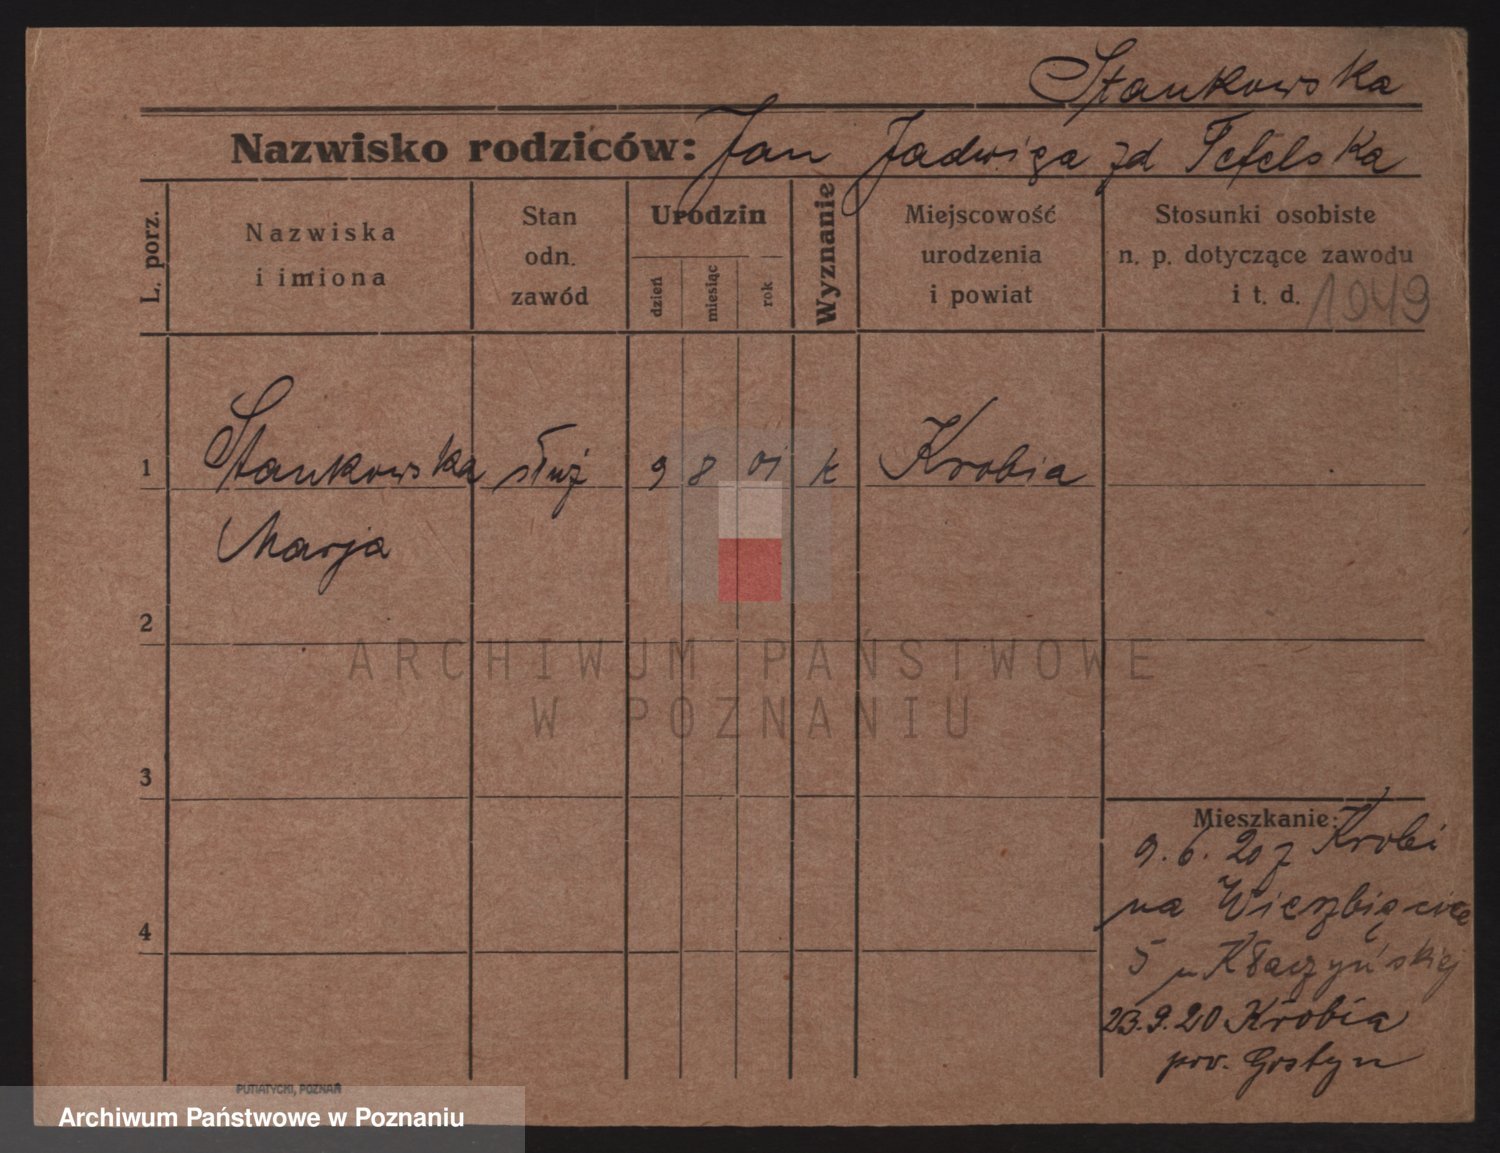 Stankowska
Nazwisko rodziców: Jan Jadwiga zd Fefelska
L. porz.
Nazwiska
i imiona
Stan
odn.
zawód
Urodzin
dzień
miesiąc
rok
Wyznanie
Miejscowość
urodzenia
i powiat
Stosunki osobiste
n. p. dotyczące zawodu
i t. d. 1949
1 Stankowska służ 9 8 01 k Krobia
Marja
2
ARCHIWUM PAŃSTWOWE
W POZNANIU
3
Mieszkanie:
9. 6. 20 z Krobi
na Wierzbięcice
4
5 u Kłaczyńskiej
23.9.20 Krobia
pow. Gostyn
PUTIATYCKI, POZNAŃ
Archiwum Państwowe w Poznaniu